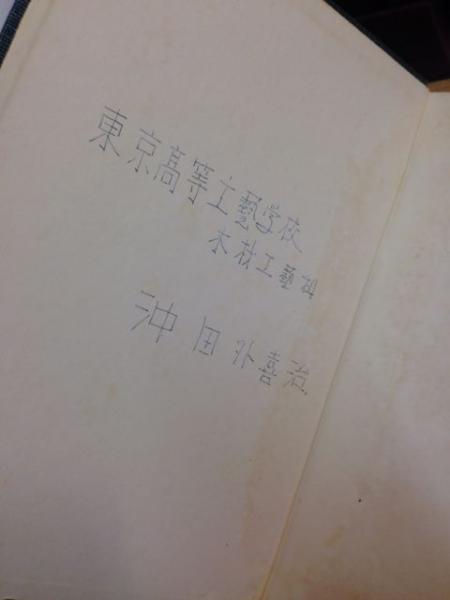 東京高等工藝学校
木材工藝科
沖田外喜治